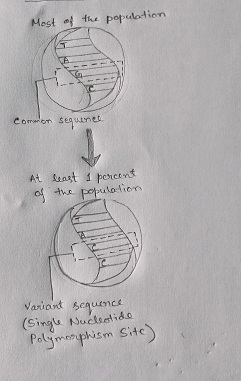 Most of the population
T
A
G
C
Common sequence
At least 1 percent
of the population
T
A
C
Variant sequence
(Single Nucleotide
Polymorphism Site)